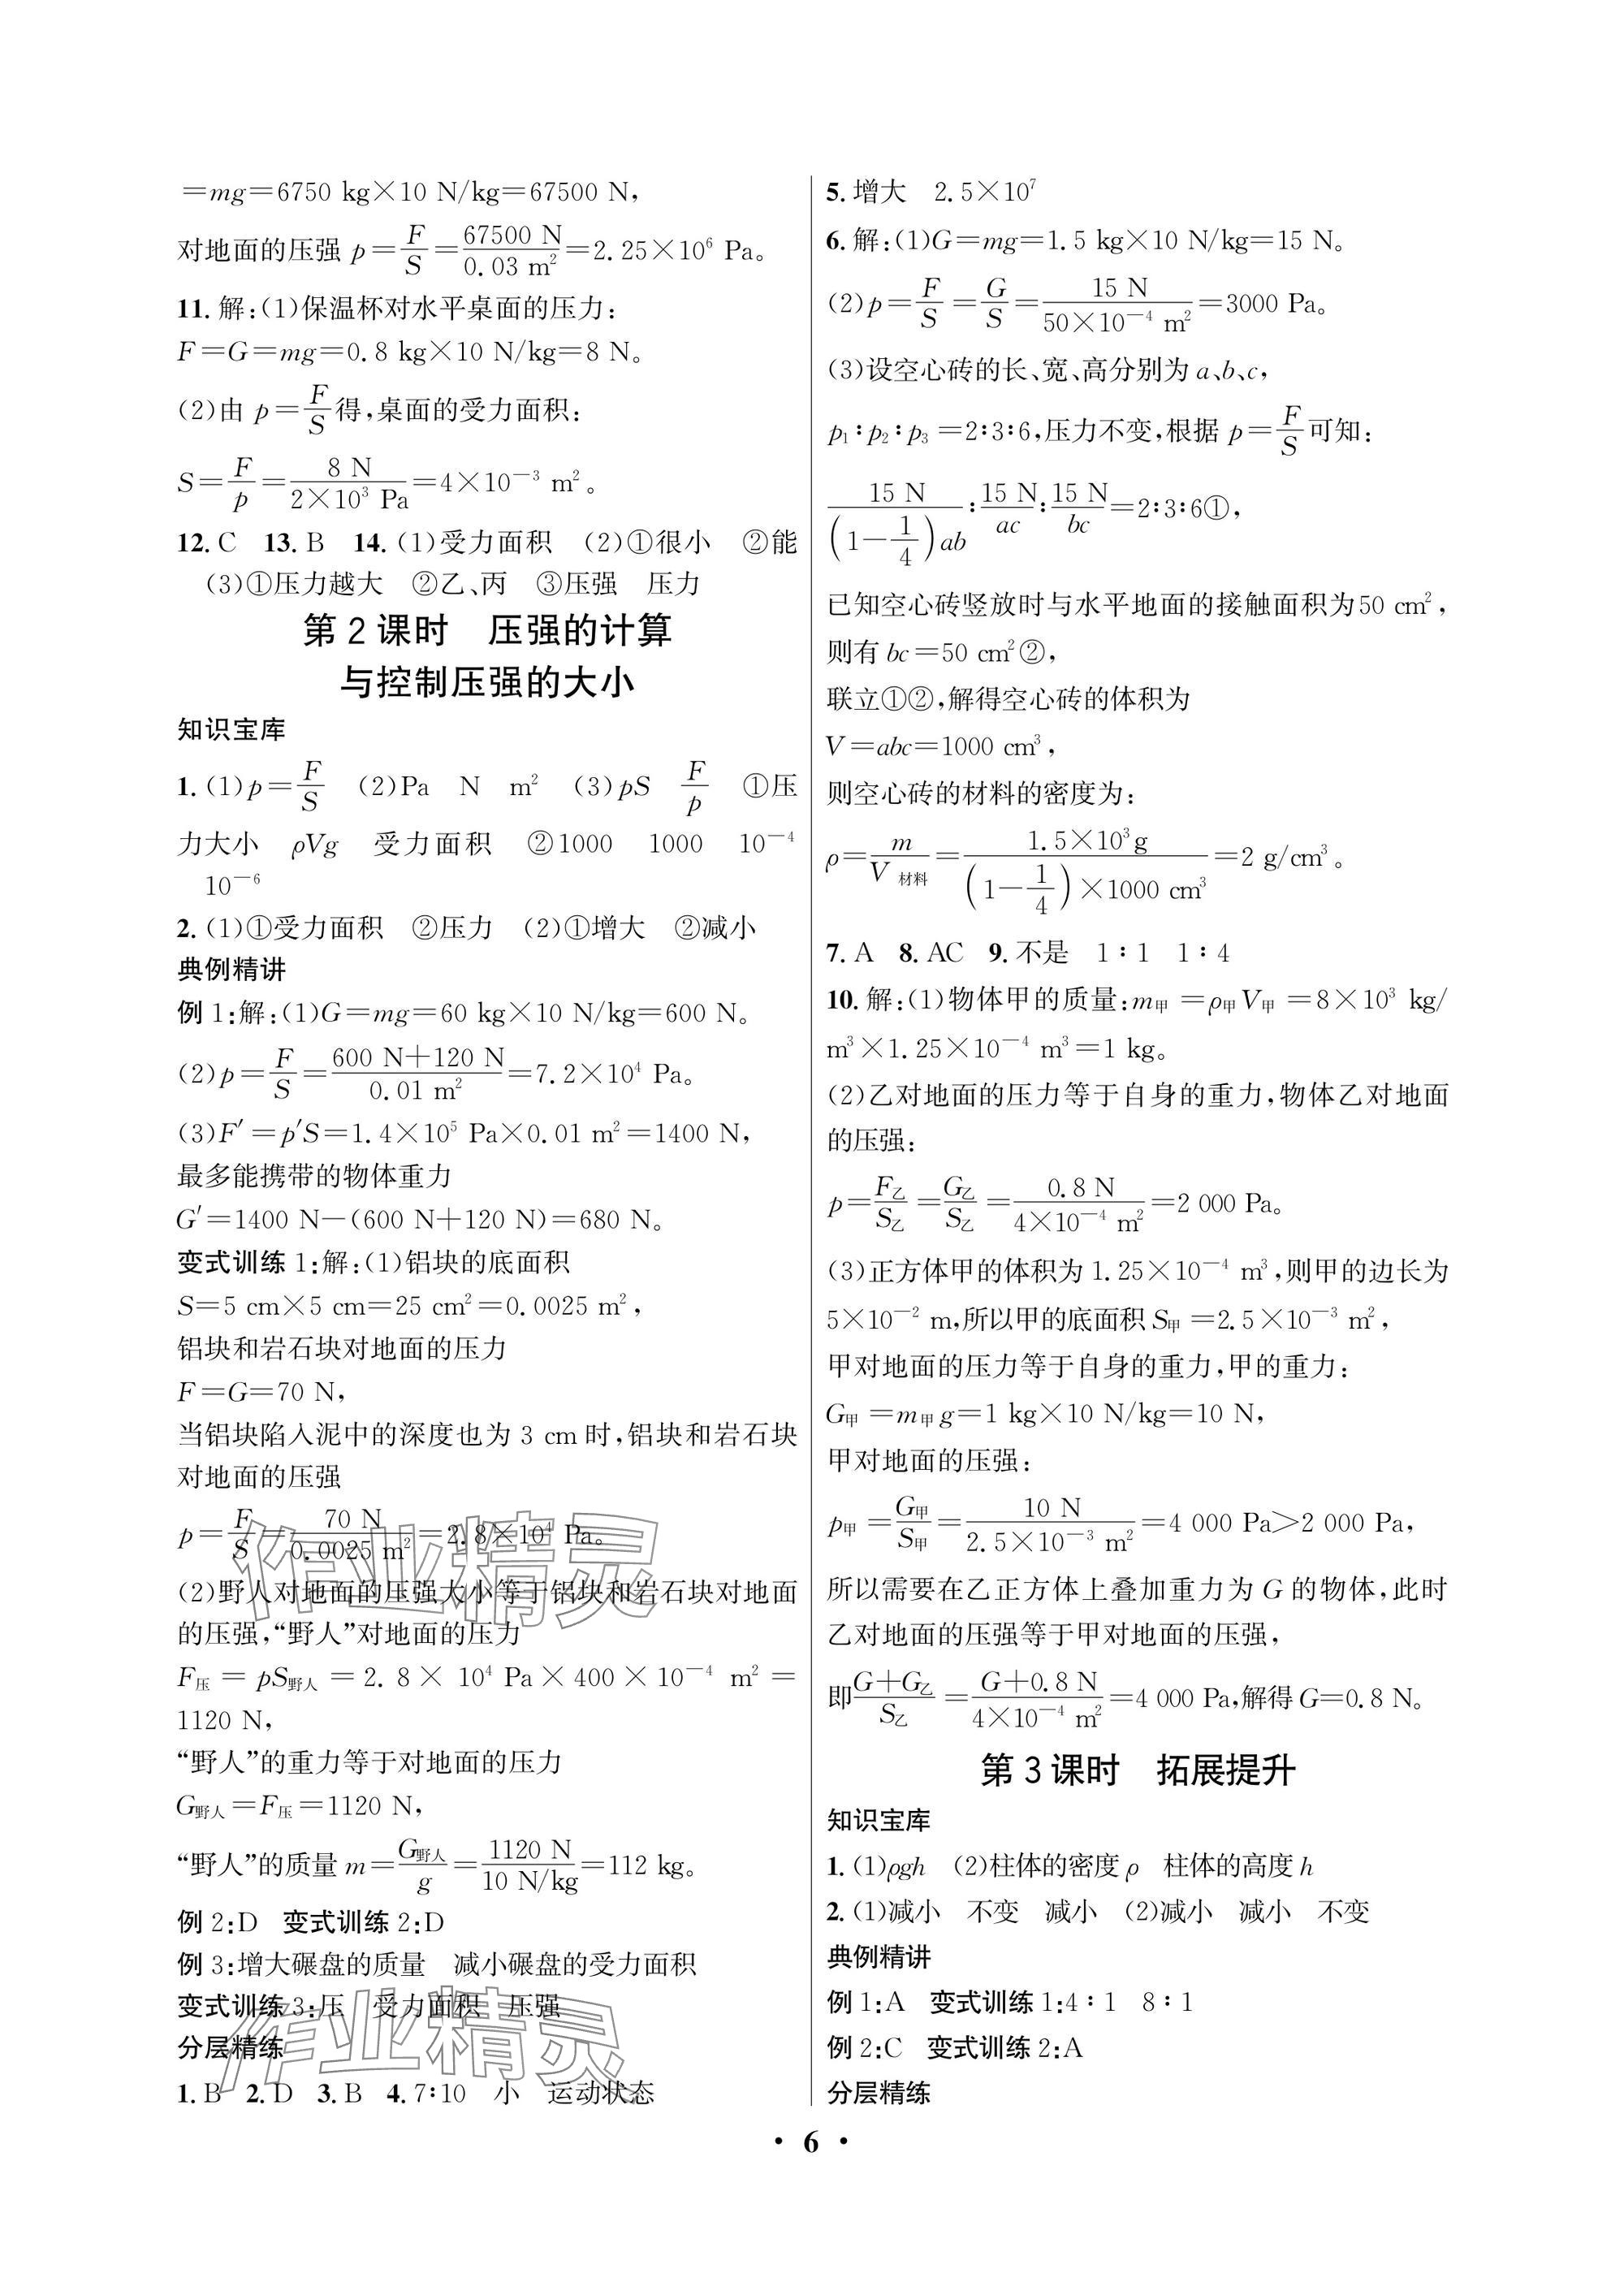 =mg=6750 kg×10 N/kg=67500 N,
对地面的压强 p=F/S=67500 N/0.03 m²=2.25×10⁶ Pa。
11.解:(1)保温杯对水平桌面的压力:
F=G=mg=0.8 kg×10 N/kg=8 N。
(2)由 p=F/S得,桌面的受力面积:
S=F/p=8 N/(2×10³ Pa)=4×10⁻³ m²。
12.C 13.B 14.(1)受力面积 (2)①很小 ②能
(3)①压力越大 ②乙、丙 ③压强 压力
第 2 课时 压强的计算
与控制压强的大小
知识宝库
1.(1)p=F/S (2)Pa N m² (3)pS F/p ①压
力大小 ρVg 受力面积 ②1000 1000 10⁻⁴
10⁻⁶
2.(1)①受力面积 ②压力 (2)①增大 ②减小
典例精讲
例 1:解:(1)G=mg=60 kg×10 N/kg=600 N。
(2)p=F/S=(600 N+120 N)/0.01 m²=7.2×10⁴ Pa。
(3)F′=p′S=1.4×10⁵ Pa×0.01 m²=1400 N,
最多能携带的物体重力
G′=1400 N-(600 N+120 N)=680 N。
变式训练 1:解:(1)铝块的底面积
S=5 cm×5 cm=25 cm²=0.0025 m²,
铝块和岩石块对地面的压力
F=G=70 N,
当铝块陷入泥中的深度也为 3 cm 时,铝块和岩石块
对地面的压强
p=F/S=70 N/0.0025 m²=2.8×10⁴ Pa。
(2)野人对地面的压强大小等于铝块和岩石块对地面
的压强,“野人”对地面的压力
F压=pS野人=2.8×10⁴ Pa×400×10⁻⁴ m²=
1120 N,
“野人”的重力等于对地面的压力
G野人=F压=1120 N,
“野人”的质量 m=G野人/g=1120 N/(10 N/kg)=112 kg。
例 2:D 变式训练 2:D
例 3:增大碾盘的质量 减小碾盘的受力面积
变式训练 3:压 受力面积 压强
分层精练
1.B 2.D 3.B 4.7∶10 小 运动状态
5.增大 2.5×10⁷
6.解:(1)G=mg=1.5 kg×10 N/kg=15 N。
(2)p=F/S=G/S=15 N/(50×10⁻⁴ m²)=3000 Pa。
(3)设空心砖的长、宽、高分别为 a、b、c,
p₁∶p₂∶p₃=2∶3∶6,压力不变,根据 p=F/S可知:
15 N/((1-1/4)ab)∶15 N/ac∶15 N/bc=2∶3∶6①,
已知空心砖竖放时与水平地面的接触面积为50 cm²,
则有 bc=50 cm²②,
联立①②,解得空心砖的体积为
V=abc=1000 cm³,
则空心砖的材料的密度为:
ρ=m/V材料=1.5×10³g/((1-1/4)×1000 cm³)=2 g/cm³。
7.A 8.AC 9.不是 1∶1 1∶4
10.解:(1)物体甲的质量:m甲=ρ甲V甲=8×10³ kg/
m³×1.25×10⁻⁴ m³=1 kg。
(2)乙对地面的压力等于自身的重力,物体乙对地面
的压强:
p=F乙/S乙=G乙/S乙=0.8 N/(4×10⁻⁴ m²)=2 000 Pa。
(3)正方体甲的体积为 1.25×10⁻⁴ m³,则甲的边长为
5×10⁻² m,所以甲的底面积 S甲=2.5×10⁻³ m²,
甲对地面的压力等于自身的重力,甲的重力:
G甲=m甲g=1 kg×10 N/kg=10 N,
甲对地面的压强:
p甲=G甲/S甲=10 N/(2.5×10⁻³ m²)=4 000 Pa>2 000 Pa,
所以需要在乙正方体上叠加重力为 G 的物体,此时
乙对地面的压强等于甲对地面的压强,
即(G+G乙)/S乙=(G+0.8 N)/(4×10⁻⁴ m²)=4 000 Pa,解得 G=0.8 N。
第 3 课时 拓展提升
知识宝库
1.(1)ρgh (2)柱体的密度 ρ 柱体的高度 h
2.(1)减小 不变 减小 (2)减小 减小 不变
典例精讲
例 1:A 变式训练 1:4∶1 8∶1
例 2:C 变式训练 2:A
分层精练
· 6 ·
作业精灵
作业精灵